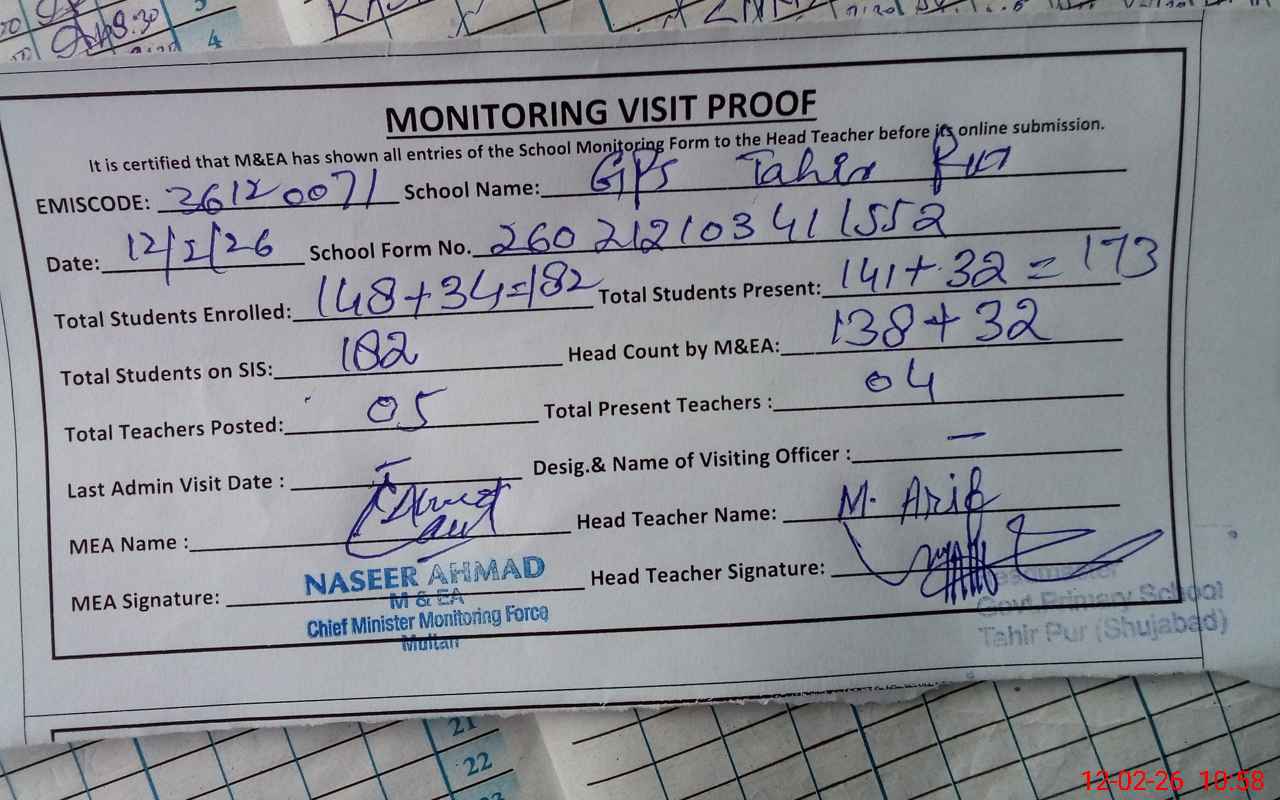 8:30
4
MONITORING VISIT PROOF
It is certified that M&EA has shown all entries of the School Monitoring Form to the Head Teacher before its online submission.
EMISCODE: 36120071 School Name: GPS Tahir Pur
Date: 12/2/26 School Form No. 260 21210341 1552
Total Students Enrolled: 148+34=182 Total Students Present: 141+32=173
Total Students on SIS: 182 Head Count by M&EA: 138+32
Total Teachers Posted: 05 Total Present Teachers : 04
Last Admin Visit Date : Desig.& Name of Visiting Officer : —
MEA Name : Head Teacher Name: M. Arif
MEA Signature: Head Teacher Signature:
NASEER AHMAD
M & EA
Chief Minister Monitoring Force
Multan
Headmaster
Govt. Primary School
Tahir Pur (Shujabad)
21
22
12-02-26 10:58